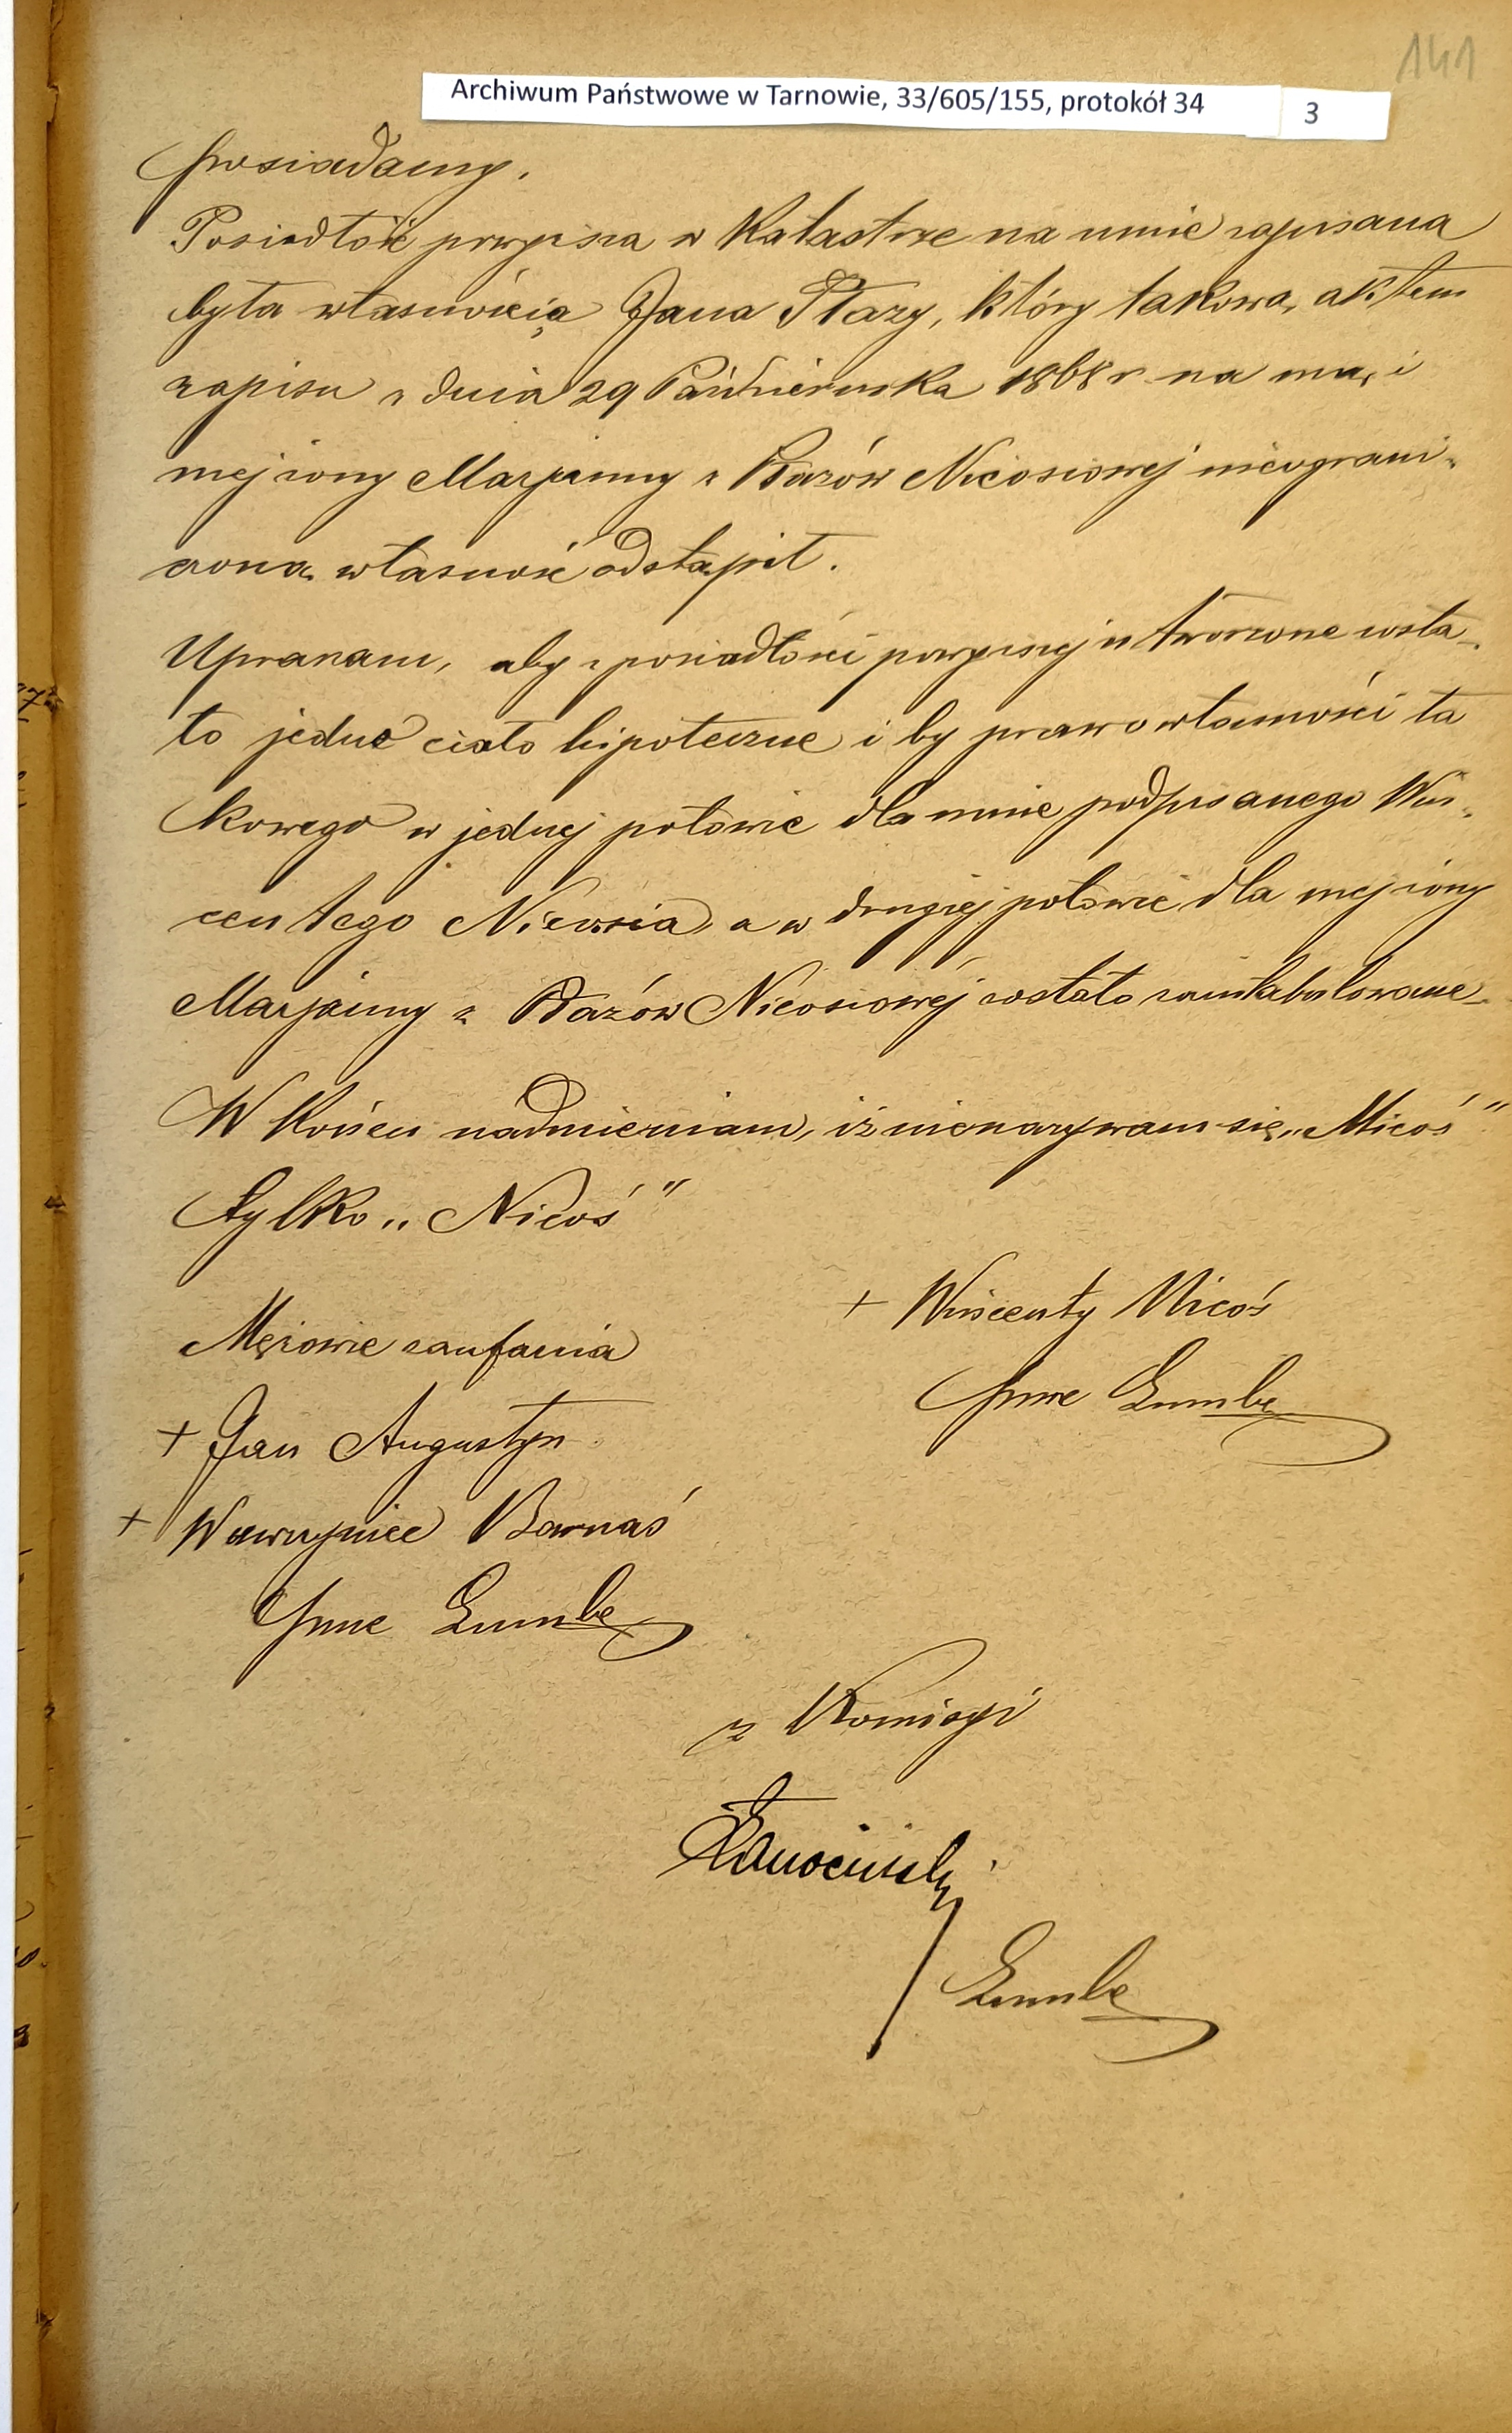 141
Archiwum Państwowe w Tarnowie, 33/605/155, protokół 34
3
posiadamy.
Posiadłość powyższa w Katastrze na mnie zapisana
była własnością Jana Płazy, który takową aktem
zapisu z dnia 29 Października 1868 r. na mą i
mej żony Maryanny z Płazów Nicosiowej nieograni-
czoną własność odstąpił.
Upraszam, aby z posiadłości powyższej utworzone zosta-
ło jedno ciało hipoteczne i by prawo własności ta
kowego w jednej połowie dla mnie podpisanego Win-
centego Nicosia, a w drugiej połowie dla mej żony
Maryanny z Płazów Nicosiowej zostało zaintabulowane.
W końcu nadmieniam, iż nienazywam się „Micoś"
tylko „Nicoś"
+ Wincenty Nicoś
Mężowie zaufania
przez
+ Jan Augustyn
+ Wawrzyniec Barnaś
przez
z Komisyi